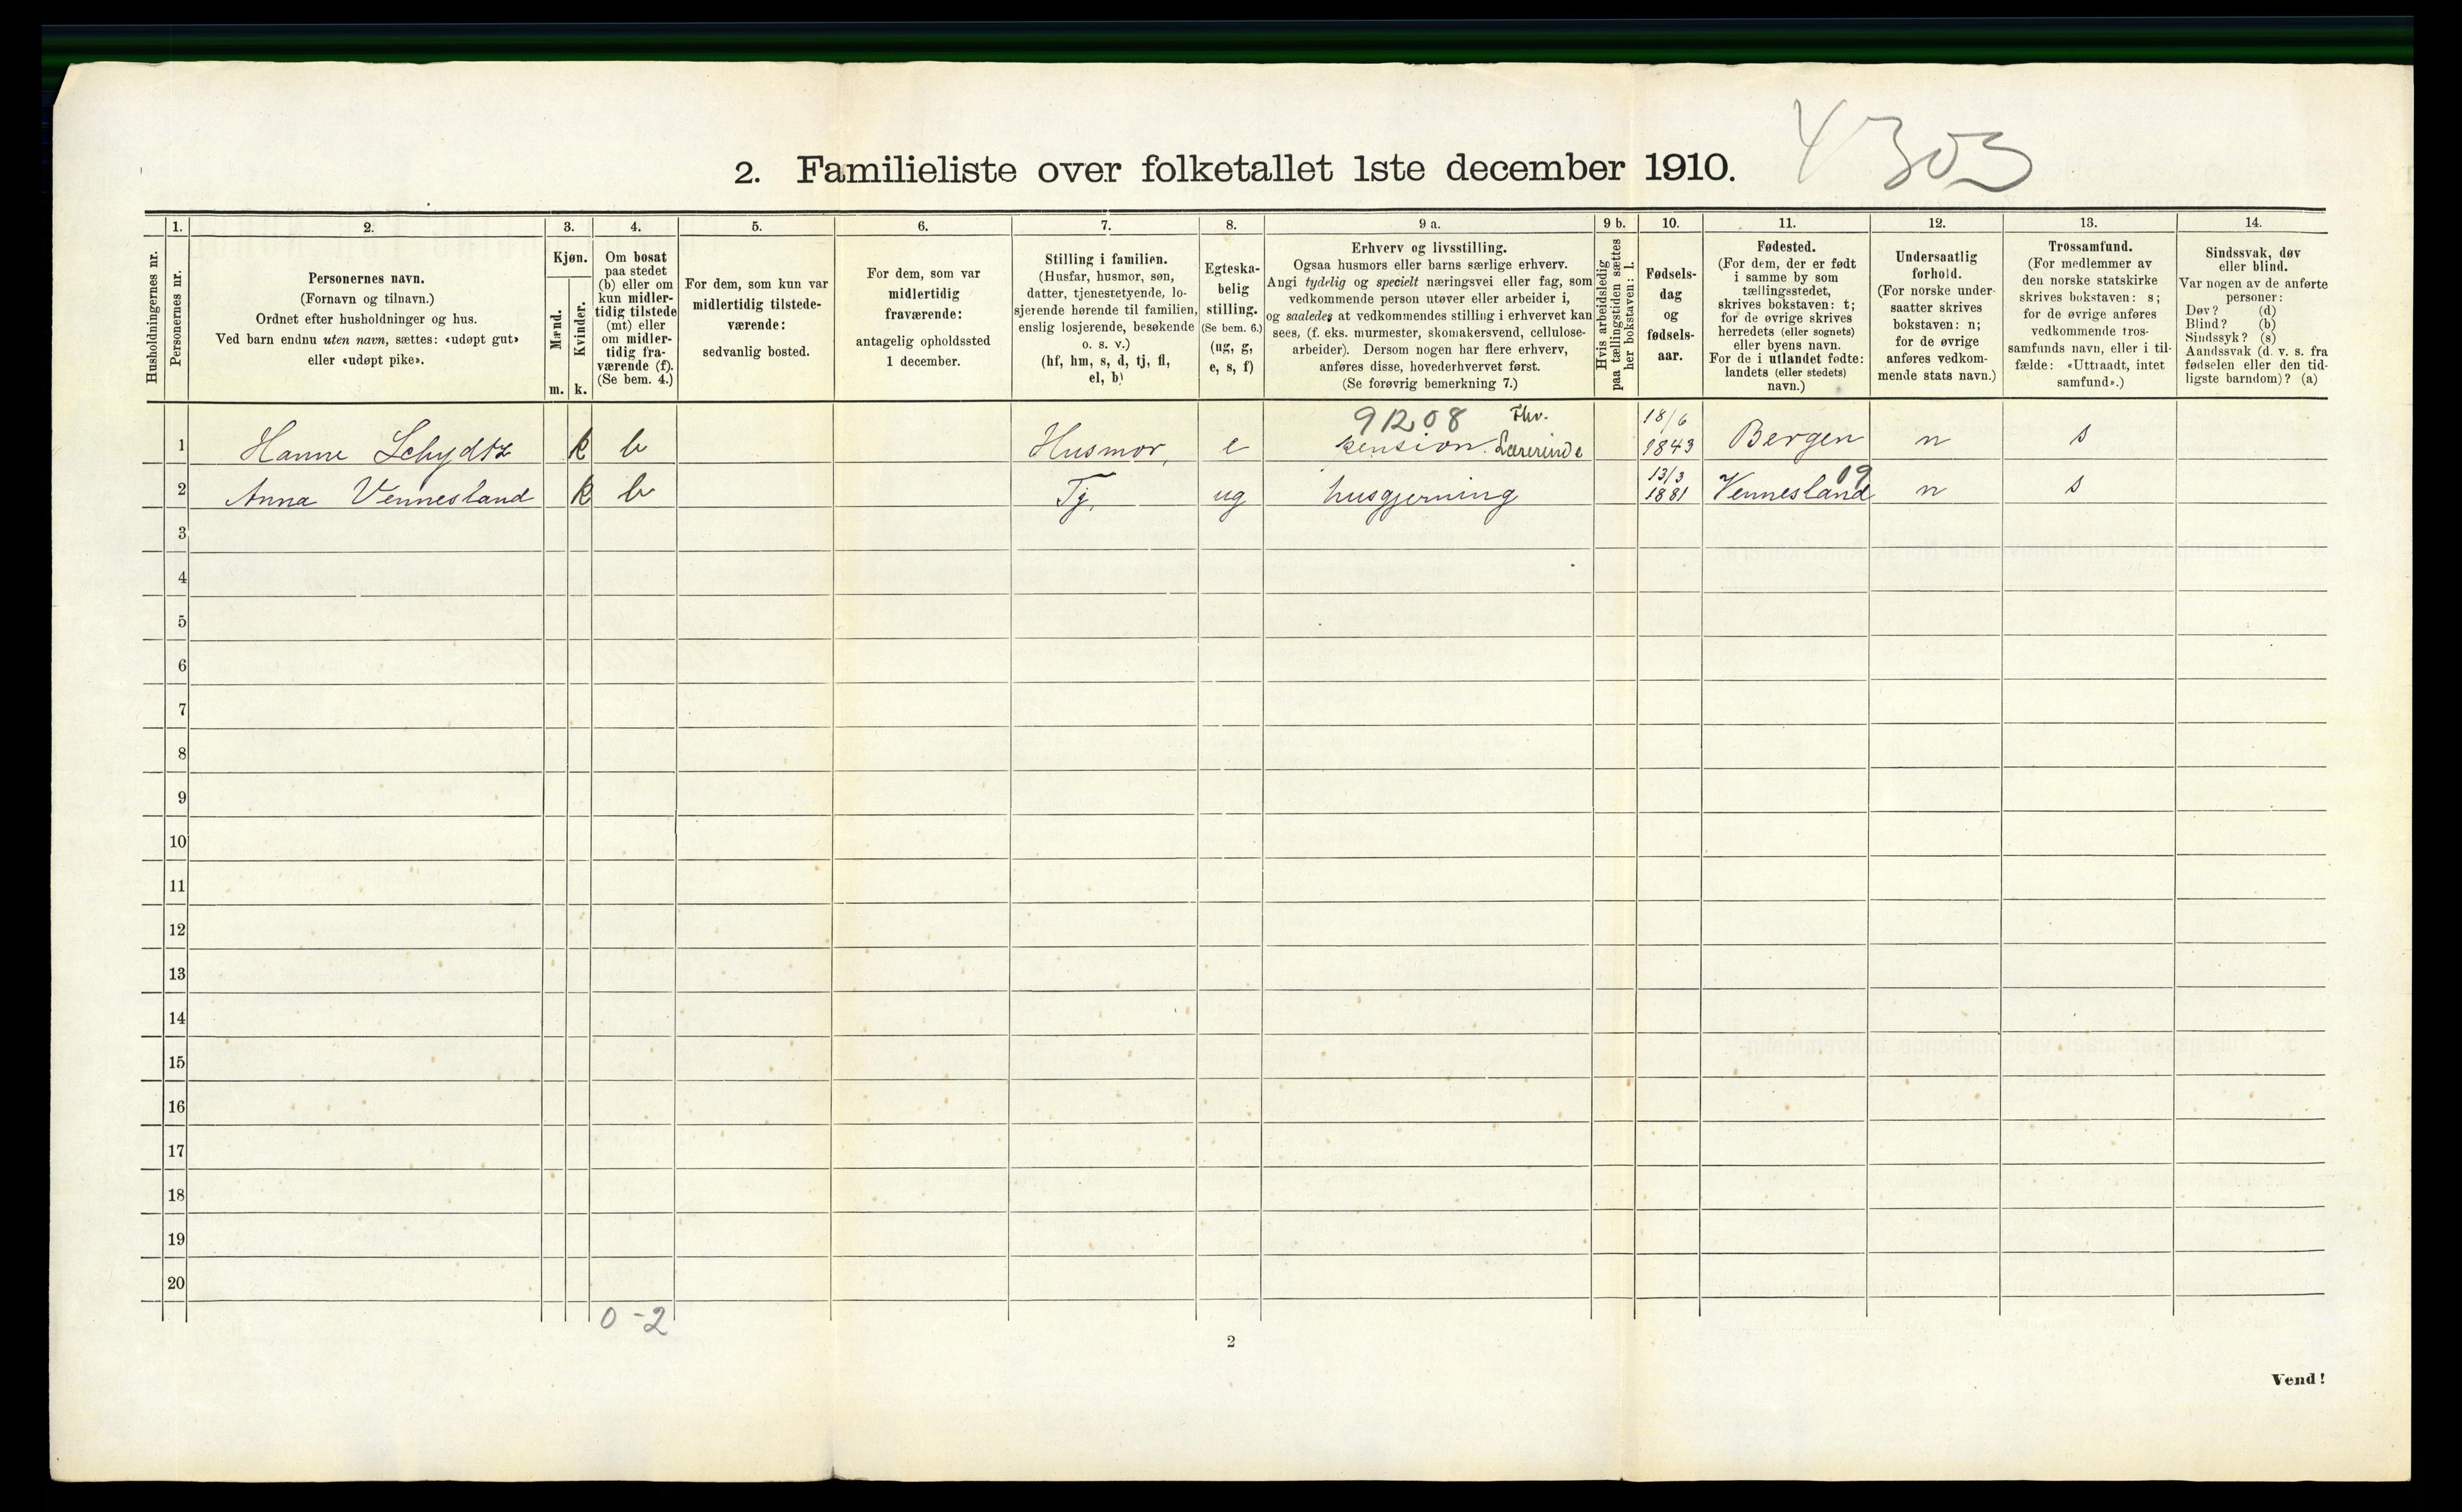 4303
2. Familieliste over folketallet 1ste december 1910.
Husholdningernes nr.
1.
Personernes nr.
2.
Personernes navn.
(Fornavn og tilnavn.)
Ordnet efter husholdninger og hus.
Ved barn endnu uten navn, sættes: «udøpt gut»
eller «udøpt pike».
3.
Kjøn.
Mænd.
m.
Kvinder.
k.
4.
Om bosat
paa stedet
(b) eller om
kun midler-
tidig tilstede
(mt) eller
om midler-
tidig fra-
værende (f).
(Se bem. 4.)
5.
For dem, som kun var
midlertidig tilstede-
værende:
sedvanlig bosted.
6.
For dem, som var
midlertidig
fraværende:
antagelig opholdssted
1 december.
7.
Stilling i familien.
(Husfar, husmor, søn,
datter, tjenestetyende, lo-
sjerende hørende til familien,
enslig losjerende, besøkende
o. s. v.)
(hf, hm, s, d, tj, fl,
el, b)
8.
Egteska-
belig
stilling.
(Se bem. 6.)
(ug, g,
e, s, f)
9 a.
Erhverv og livsstilling.
Ogsaa husmors eller barns særlige erhverv.
Angi tydelig og specielt næringsvei eller fag, som
vedkommende person utøver eller arbeider i,
og saaledes at vedkommendes stilling i erhvervet kan
sees, (f. eks. murmester, skomakersvend, cellulose-
arbeider). Dersom nogen har flere erhverv,
anføres disse, hovederhvervet først.
(Se forøvrig bemerkning 7.)
9 b.
Hvis arbeidsledig
paa tællingstiden sættes
her bokstaven: l.
10.
Fødsels-
dag
og
fødsels-
aar.
11.
Fødested.
(For dem, der er født
i samme by som
tællingsstedet,
skrives bokstaven: t;
for de øvrige skrives
herredets (eller sognets)
eller byens navn.
For de i utlandet fødte:
landets (eller stedets)
navn.)
12.
Undersaatlig
forhold.
(For norske under-
saatter skrives
bokstaven: n;
for de øvrige
anføres vedkom-
mende stats navn.)
13.
Trossamfund.
(For medlemmer av
den norske statskirke
skrives bokstaven: s;
for de øvrige anføres
vedkommende tros-
samfunds navn, eller i til-
fælde: «Uttraadt, intet
samfund».)
14.
Sindssvak, døv
eller blind.
Var nogen av de anførte
personer:
Døv? (d)
Blind? (b)
Sindssyk? (s)
Aandssvak (d. v. s. fra
fødselen eller den tid-
ligste barndom)? (a)
91208 Fhv. 18/6
1 Hanne Schydtz k b Husmor, e pension. Lærerinde 1843 Bergen n s
13/3 09
2 Anna Vennesland k b Tj. ug husgjerning 1881 Vennesland n s
3
4
5
6
7
8
9
10
11
12
13
14
15
16
17
18
19
20
0 - 2
2
Vend!